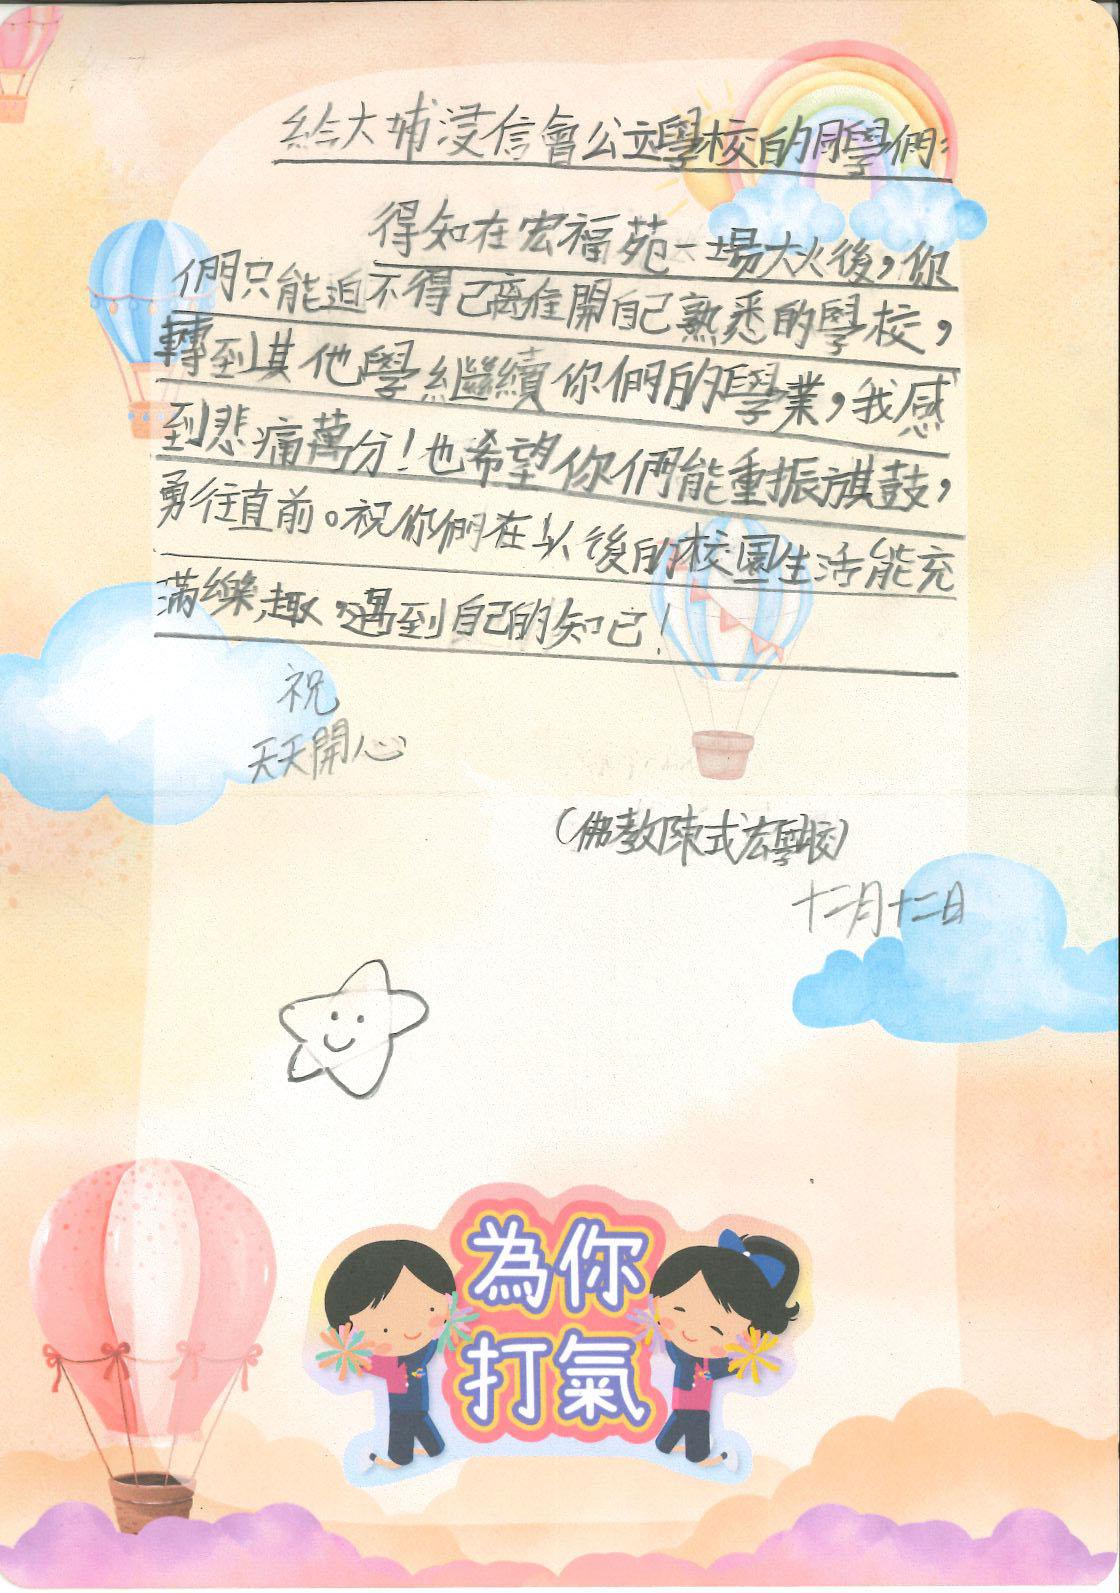 給大埔浸信會公立學校的同學們：
得知在宏福苑一場大火後，你
們只能迫不得已離開自己熟悉的學校，
轉到其他學繼續你們的學業，我感
到悲痛萬分！也希望你們能重振旗鼓，
勇往直前。祝你們在以後的校園生活能充
滿樂趣，遇到自己的知己！
祝
天天開心
（佛教陳式宏學校）
十二月十二日
為你
打氣